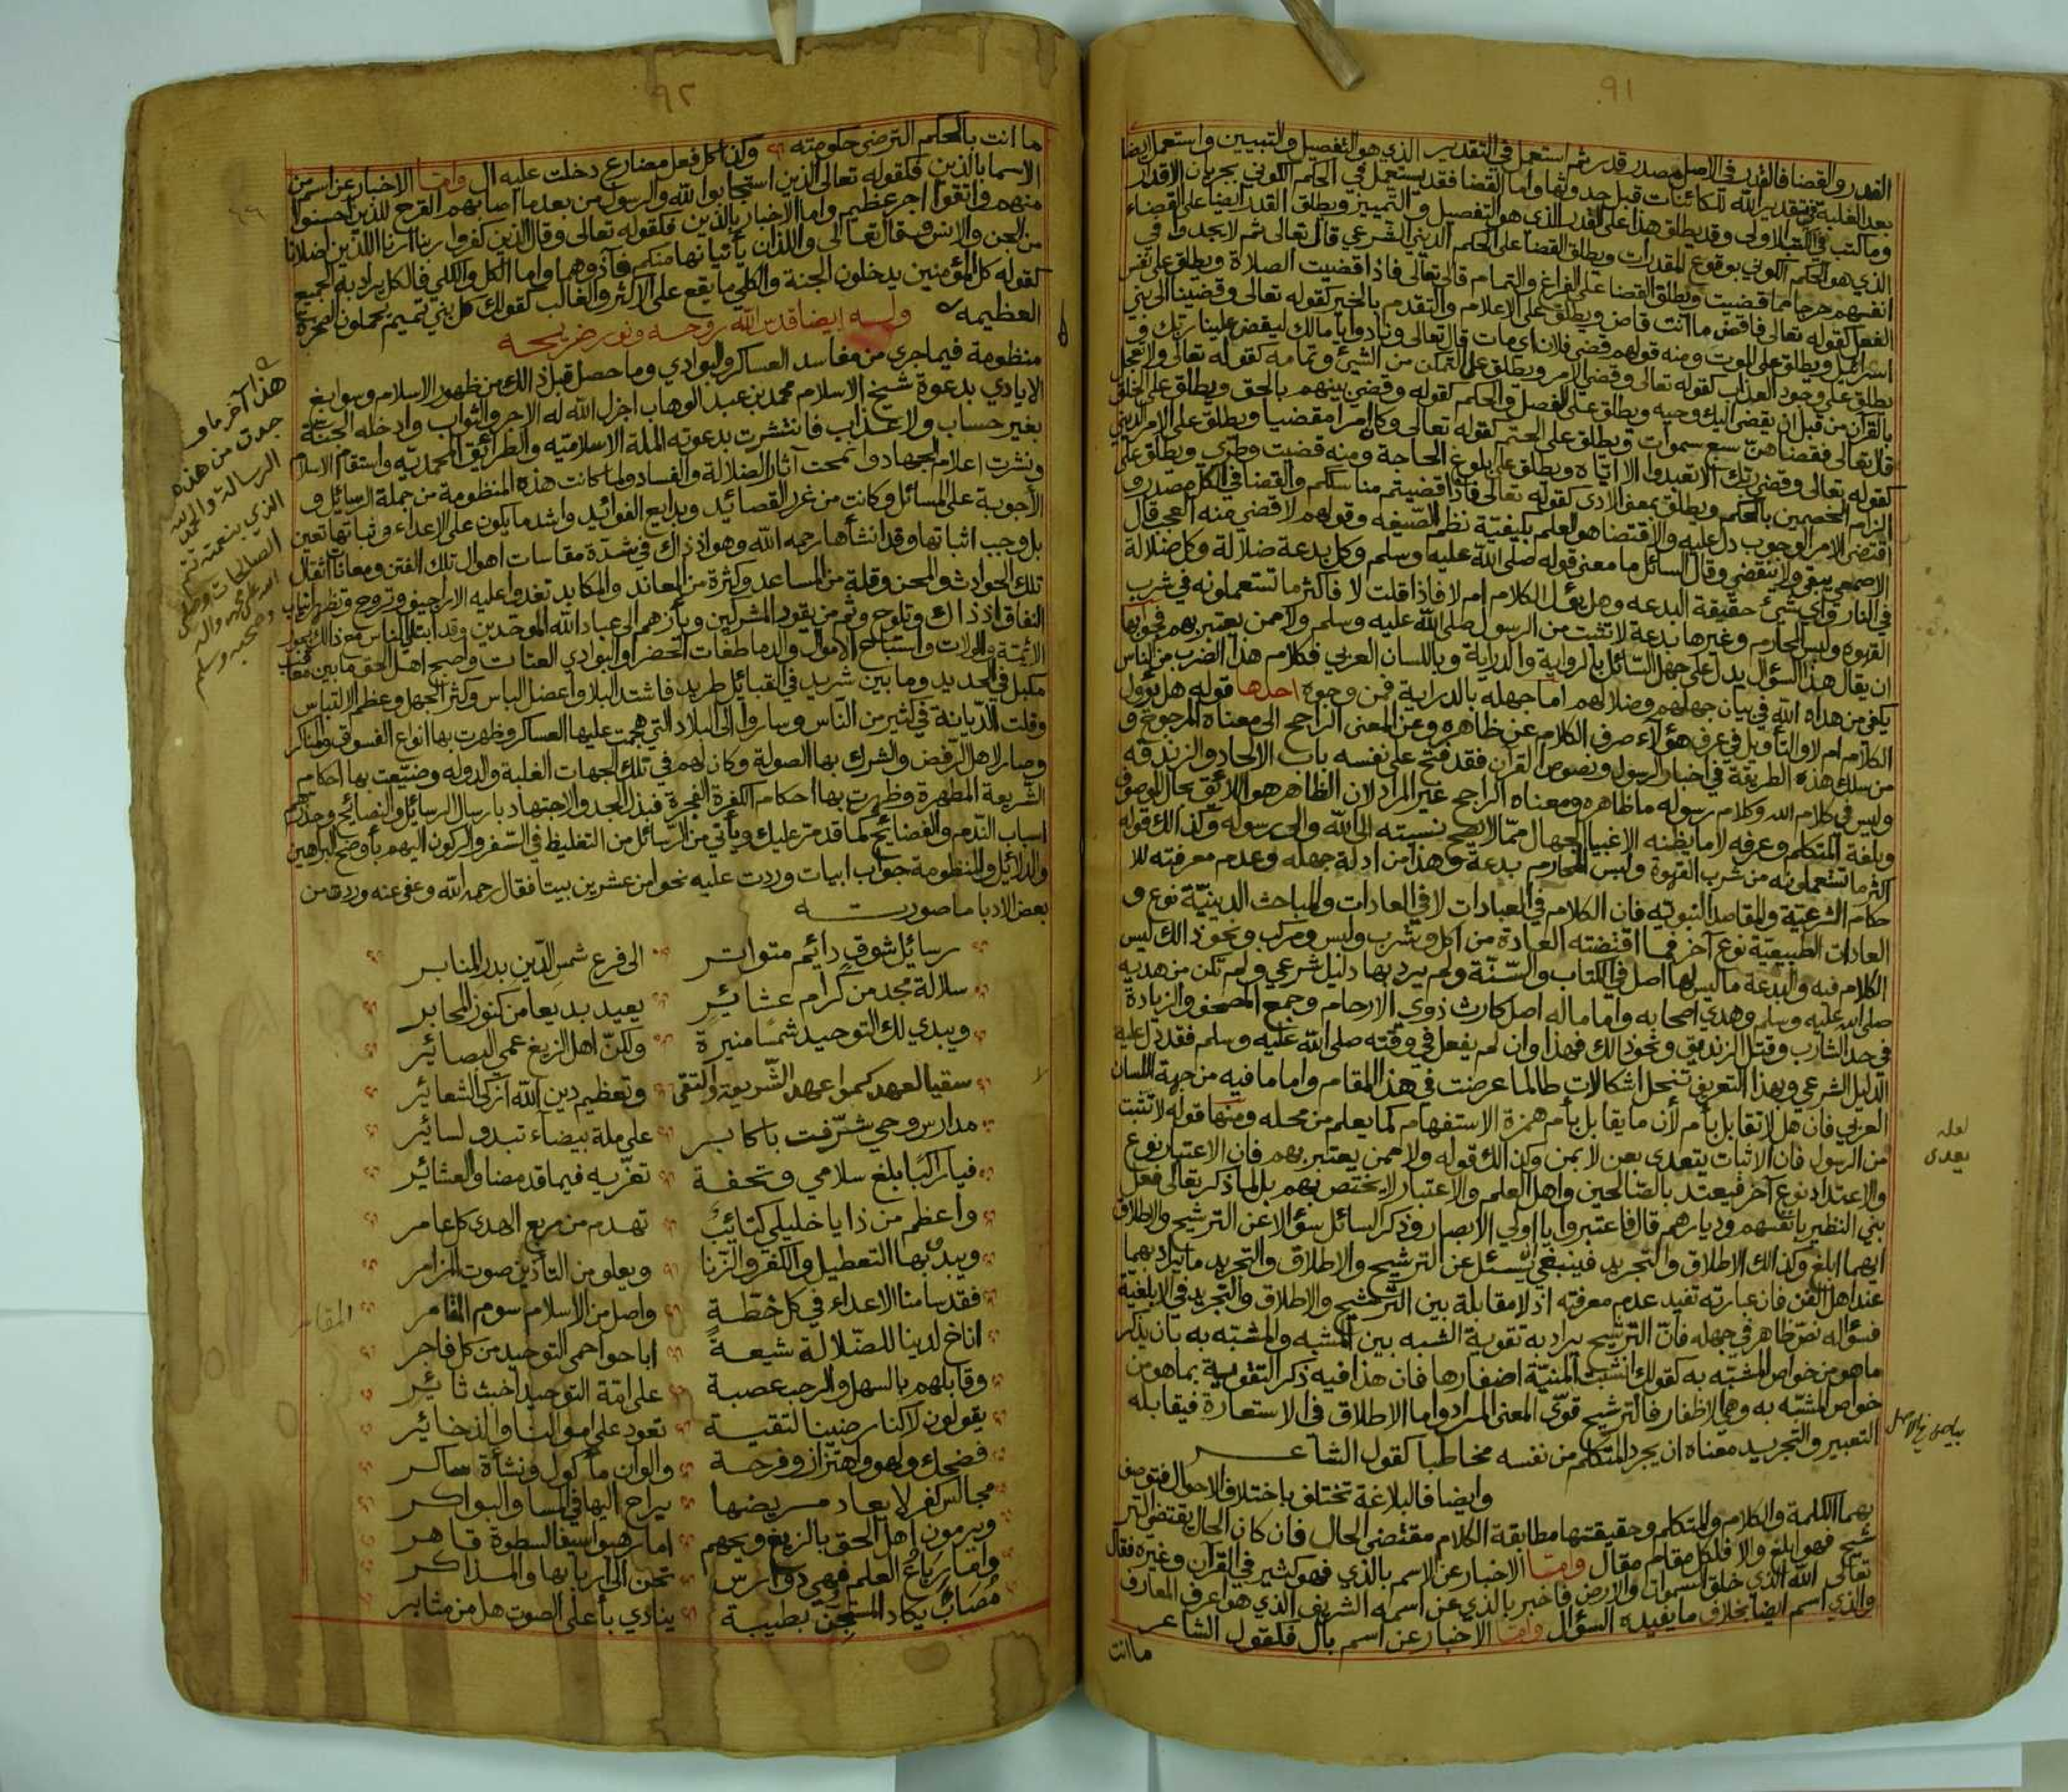 ٩١
القدر والقضا فالقدر في الاصل مصدر قدر ثم استعمل في التقدير الذي هو التفصيل والتبيين واستعمل ايضا
بعد الغلبة في تقدير الله للكائنات قبل حدوثها واما القضا فقد يستعمل في الحكم الكوني بجريان الاقدار
وما كتب في الكتب الاولى وقد يطلق هذا على القدر الذي هو التفصيل والتمييز ويطلق القدر ايضا على القضاء
الذي هو الحكم الكوني بوقوع المقدرات ويطلق القضا على الحكم الديني الشرعي قال تعالى ثم لا يجدوا في
انفسهم حرجا مما قضيت ويطلق القضا على الفراغ والتمام قال تعالى فاذا قضيت الصلاة ويطلق على نفس
الفعل كقوله تعالى فاقض ما انت قاض ويطلق على الاعلام والتقدم بالخبر كقوله تعالى وقضينا الى بني
اسرائيل ويطلق على الموت ومنه قولهم قضى فلان اي مات قال تعالى ونادوا يا مالك ليقض علينا ربك و
يطلق على وجود العذاب كقوله تعالى وقضي الامر ويطلق على التمكن من الشيئ وتمامه كقوله تعالى ولا تعجل
بالقرآن من قبل ان يقضى اليك وحيه ويطلق على الفصل والحكم كقوله وقضي بينهم بالحق ويطلق على الخلق
قال تعالى فقضاهن سبع سموات ويطلق على الحتم كقوله تعالى وكان امرا مقضيا ويطلق على الامر الديني
كقوله تعالى وقضى ربك الا تعبدوا الا اياه ويطلق على بلوغ الحاجة ومنه قضيت وطري ويطلق على
الزام الخصمين بالحكم ويطلق بمعنى الادا كقوله تعالى فاذا قضيتم مناسككم والقضا في الكل مصدر و
اقتضى الامر الوجوب دل عليه والاقتضا هو العلم بكيفيتة نظم الصيغه وقولهم لا اقضي منه العجب قال
الاصمعي يبقى ولا ينقضي وقال السائل ما معنى قوله صلى الله عليه وسلم وكل بدعة ضلالة وكل ضلالة
في النار واي شيئ حقيقة البدعه وهل يؤل الكلام ام لا فاذا قلت لا فاكثر ما تستعملونه في شرب
القهوه ولبس المحارم وغيرها بدعة لا تثبت من الرسول صلى الله عليه وسلم ولا ممن يعتبر بهم فجوابها
ان يقال هذا السؤال يدل على جهل السائل بالرواية والدراية وباللسان العربي فكلام هذا الضرب من الناس
يكفي من هداه الله في بيان جهلهم وضلالهم اما جهله بالدراية فمن وجوه احدها قوله هل يؤول
الكلام ام لا والتأويل في عرف هؤلاء صرف الكلام عن ظاهره وعن المعنى الراجح الى معناه المرجوح و
من سلك هذه الطريقة في اخبار الرسول ونصوص القران فقد فتح على نفسه باب الالحاد والزندقه
وليس في كلام الله وكلام رسوله ما ظاهره ومعناه الراجح غير المراد لان الظاهر هو اللائق بحال الموصوف
وبلغة المتكلم وعرفه لا ما يظنه الاغبيا الجهال مما لا يصح نسبته الى الله والى رسوله وكذالك قوله
اكثر ما تستعملونه من شرب القهوة ولبس المحارم بدعة وهذا من ادلة جهله وعدم معرفته للا
حكام الشرعية والمقاصد النبويه فان الكلام في العبادات لا في العادات والمباحث الدينية نوع و
العادات الطبيعية نوع آخر فما اقتضته العادة من اكل وشرب ولبس ومركب ونحو ذالك ليس
الكلام فيه والبدعة ما ليس لها اصل في الكتاب والسنة ولم يرد بها دليل شرعي ولم تكن من هديه
صلى الله عليه وسلم وهدي اصحابه واما ما له اصل كارث ذوي الارحام وجمع المصحف والزيادة
في حد الشارب وقتل الزنديق ونحو ذالك فهذا وان لم يفعل في وقته صلى الله عليه وسلم فقد دل عليه
الدليل الشرعي وبهذا التعريف تنحل اشكالات طالما عرضت في هذا المقام واما ما فيه من جهة اللسان
العربي فان هل لا تقابل بأم لأن ما يقابل بأم همزة الاستفهام كما يعلم من محله ومنها قوله لا تثبت
من الرسول فان الاثبات يتعدى بعن لا بمن وكذالك قوله ولا ممن يعتبر بهم فان الاعتبار نوع
والاعتداد نوع آخر فيعتد بالصالحين واهل العلم والاعتبار لا يختص بهم بل لما ذكر تعالى فعل
بني النظير بانفسهم وديارهم قال فاعتبروا يا اولي الابصار وذكر السائل سؤالا عن الترشيح والاطلاق
ايهما ابلغ وكذالك الاطلاق والتجريد فينبغي ان يسئل عن الترشيح والاطلاق والتجريد ما يراد بهما
عند اهل الفن فان عبارته تفيد عدم معرفته اذ لا مقابلة بين الترشيح والاطلاق والتجريد في الابلغية
فسؤاله نص ظاهر في جهله فان الترشيح يراد به تقوية الشبه بين المشبه والمشبه به بان يذكر
ما هو من خواص المشبه به كقولك انشبت المنية اضفارها فان هذا فيه ذكر التقوية بما هو من
خواص المشبه به وهي الاظفار فالترشيح قوي المعنى المراد واما الاطلاق في الاستعارة فيقابله
التعبير والتجريد معناه ان يجرد المتكلم من نفسه مخاطبا كقول الشاعر
وايضا فالبلاغة تختلف باختلاف الاحوال فتوصف
بهما الكلمة والكلام والمتكلم وحقيقتها مطابقة الكلام مقتضى الحال فان كان الحال يقتضي التر
شيح فهو ابلغ والا فلكل مقام مقال واما الاخبار عن الاسم بالذي فهو كثير في القرآن وغيره فقال
تعالى الله الذي خلق السموات والارض فاخبر بالذي عن اسمه الشريف الذي هو اعرف المعارف
والذي اسم ايضا بخلاف ما يفيده السؤال واما الاخبار عن اسم بال فكقول الشاعر
ما انت
لعله
يعدى
بياض في الاصل
٩٢
ما انت بالحكم الترضى حكومته وكذا كل فعل مضارع دخلت عليه ال واما الاخبار عن اسم من
الاسما بالذين فكقوله تعالى الذين استجابوا لله والرسول من بعد ما اصابهم القرح للذين احسنوا
منهم واتقوا اجر عظيم واما الاخبار بالذين فكقوله تعالى وقال الذين كفروا ربنا ارنا اللذين اضلانا
من الجن والانس وقال تعالى واللذان يأتيانها منكم فآذوهما واما الكل والكلي فالكل يراد به الجميع
كقوله كل المؤمنين يدخلون الجنة والكلي ما يقع على الاكثر والغالب كقولك كل بني تميم يحملون الصخرة
العظيمه وله ايضا قدس الله روحه ونور ضريحه
منظومة فيما جرى من مفاسد العساكر والبوادي وما حصل قبل ذالك من ظهور الاسلام وسوابغ
الايادي بدعوة شيخ الاسلام محمد بن عبد الوهاب اجزل الله له الاجر والثواب وادخله الجنة
بغير حساب ولا عذاب فانتشرت بدعوته الملة الاسلامية والطرائق المحمدية واستقام الاسلام
ونشرت اعلام الجهاد وانمحت آثار الضلالة والفساد ولما كانت هذه المنظومة من جملة الرسائل و
الأجوبة على المسائل وكانت من غرر القصائد وبدايع الفوائد واشد ما يكون على الاعداء وثباتها تعين
بل وجب اثباتها وقد انشأها رحمه الله وهو اذ ذاك في شدة مقاسات اهوال تلك الفتن ومعانات اثقال
تلك الحوادث والمحن وقلة من المساعد وكثرة من المعاند والمكايد تغدوا عليه الاراجيف وتروح وتظهر انياب
النفاق اذ ذاك وتلوح وثم من يقود المشركين ويأزهم الى عباد الله الموحدين وقد ابتلي الناس مع ذالك بجور
الائمة والولات واستباح الاموال والدما طغات الحضر والبوادي العتات واصبح اهل الحق ما بين مغاب
مكبل في الحديد وما بين شريد في القبائل طريد فاشتد البلا واعضل الباس وكثر الجهل وعظم الالتباس
وقلت الديانة في كثير من الناس وساروا الى البلاد التي هجمت عليها العساكر وظهرت بها انواع الفسوق والمناكر
وصار لاهل الرفض والشرك بها الصولة وكان لهم في تلك الجهات الغلبة والدوله وضيعت بها احكام
الشريعة المطهرة وظهرت بها احكام الكفرة الفجرة فبذل الجد والاجتهاد بارسال الرسائل والنصايح وحذرهم
اسباب الندم والفضائح كما قد مر عليك ويأتي من الرسائل من التغليظ في السفر والركون اليهم بأوضح البراهين
والدلائل والمنظومة جواب ابيات وردت عليه نحوا من عشرين بيتا فقال رحمه الله وعفى عنه وردها من
بعض الادبا ما صورته
رسائل شوق دائم متواتر الى فرع شمس الدين بدر المنابر
سلالة مجد من كرام عشائر يعيد بديعا من كنوز المحابر
ويبدي لك التوحيد شمسا منيرة ولكن اهل الزيغ عمي البصائر
سقيا لعهد كموا عهد الشريعة والتقى وتعظيم دين الله ازكى الشعائر
مدارس وحي شرفت باكابر على ملة بيضاء تبدو لسائر
فيا راكبا بلغ سلامي وتحفة تعزيه فيما قد مضا والعشائر
واعظم من ذا يا خليلي كتائب تهدم من ربع الهدى كل عامر
ويبدو بها التعطيل والكفر والزنا ويعلو من التأذين صوت المزامر
فقد سامنا الاعداء في كل خطة واصل من الاسلام سوم المقامر
اناخ لدينا للضلالة شيعة اباحوا حمى التوحيد من كل فاجر
وقابلهم بالسهل والرحب عصبة على امة التوحيد اخبث ثائر
يقولون لاكنا رضينا لتقية تعود على اموالنا والذخائر
فضحك ولهو واهتزاز وفرحة والوان مأكول ونشأة ساكر
مجالس كفر لا يعاد مريضها يراح اليها في المسا والبواكر
ويرمون اهل الحق بالزيغ ويحهم اما رهبوا سيفا لسطوة قاهر
واما رباع العلم فهي دوارس تحن الى اربابها والمذاكر
مصاب يكاد المستجن بطيبة ينادي بأعلى الصوت هل من مثابر
هذا آخر ما و
جدت من هذه
الرسالة والحمد لله
الذي بنعمته تتم
الصالحات وصلى
الله على محمد واله
وصحبه وسلم
المقامر